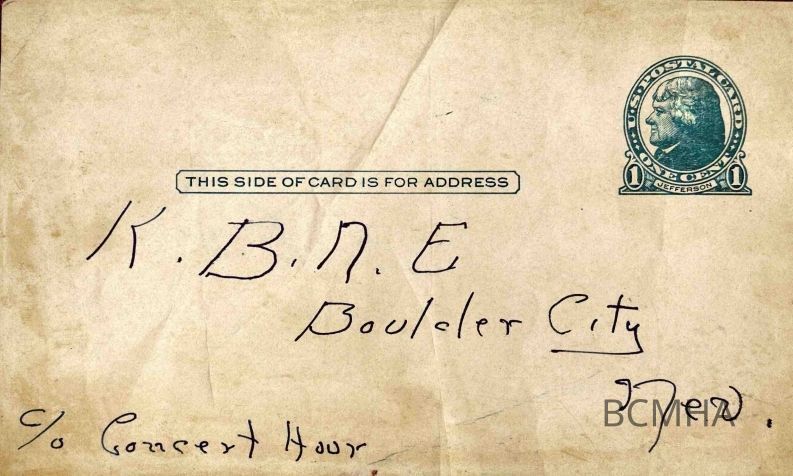 U.S. POSTAL CARD
ONE CENT
1 JEFFERSON 1
THIS SIDE OF CARD IS FOR ADDRESS
K. B. N. E
Boulder City
Nev.
c/o Concert Hour
BCMHA